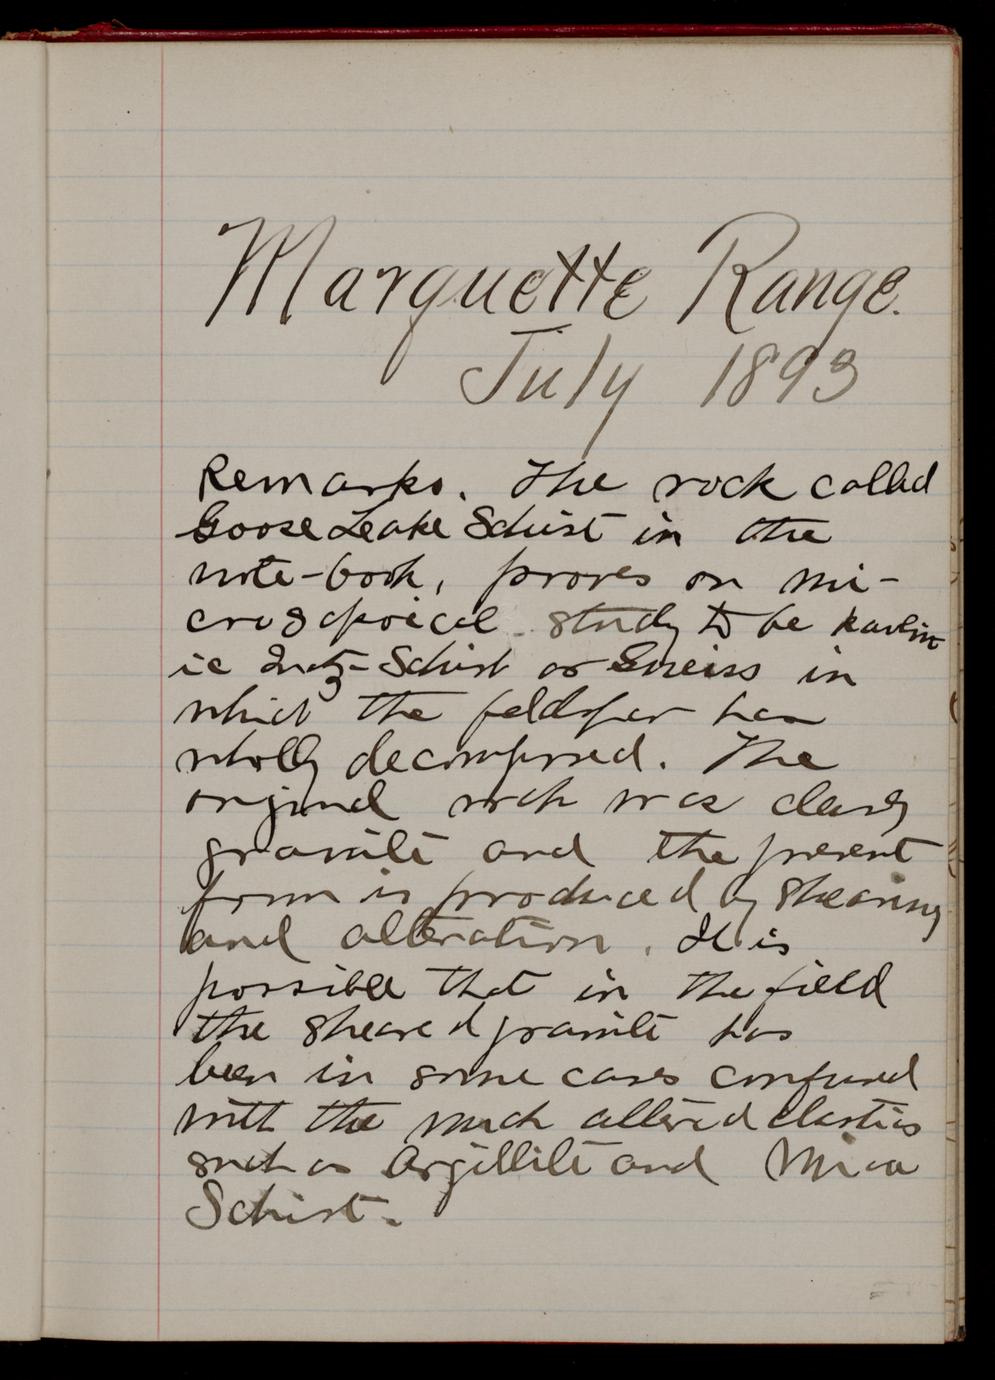 Marquette Range.
July 1893
Remarks. The rock called
Goose Leake Schist in the
note-book, proves on mi-
croscopoical study to be kaolin
ic Qutz-Schist or Gneiss in
which the feldspar has
wholly decomposed. The
original rock was clearly
granite and the present
form is produced by shearing
and alteration. It is
possible that in the field
the sheared granite has
been in some cases confused
with the much altered clastics
such as Argillite and Mica
Schist.